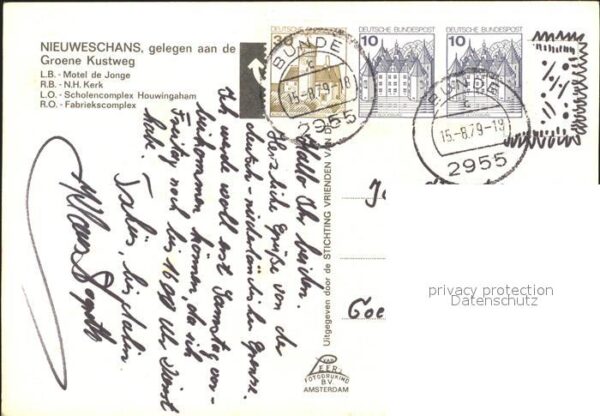 NIEUWESCHANS, gelegen aan de
Groene Kustweg
L.B. - Motel de Jonge
R.B. - N.H. Kerk
L.O. - Scholencomplex Houwingaham
R.O. - Fabriekscomplex
DEUTSCHE BUNDESPOST
DEUTSCHE BUNDESPOST
10
DEUTSCHE BUNDESPOST
10
BUNDE
c
15.-8.79-19
2955
BUNDE
c
15.-8.79-19
2955
Hallo Ihr beiden.
Herzliche Grüße von der
deutsch-niederländischen Grenze.
Ich werde wohl erst Samstag vor-
beikommen können, da ich
Freitag noch bis 16 00 Uhr Dienst
habe.
Tschüs, bis dahin
Klaus
Uitgegeven door de STICHTING VRIENDEN VAN
Goe
VAN LEER
FOTODRUKIND
B.V.
AMSTERDAM
privacy protection
Datenschutz